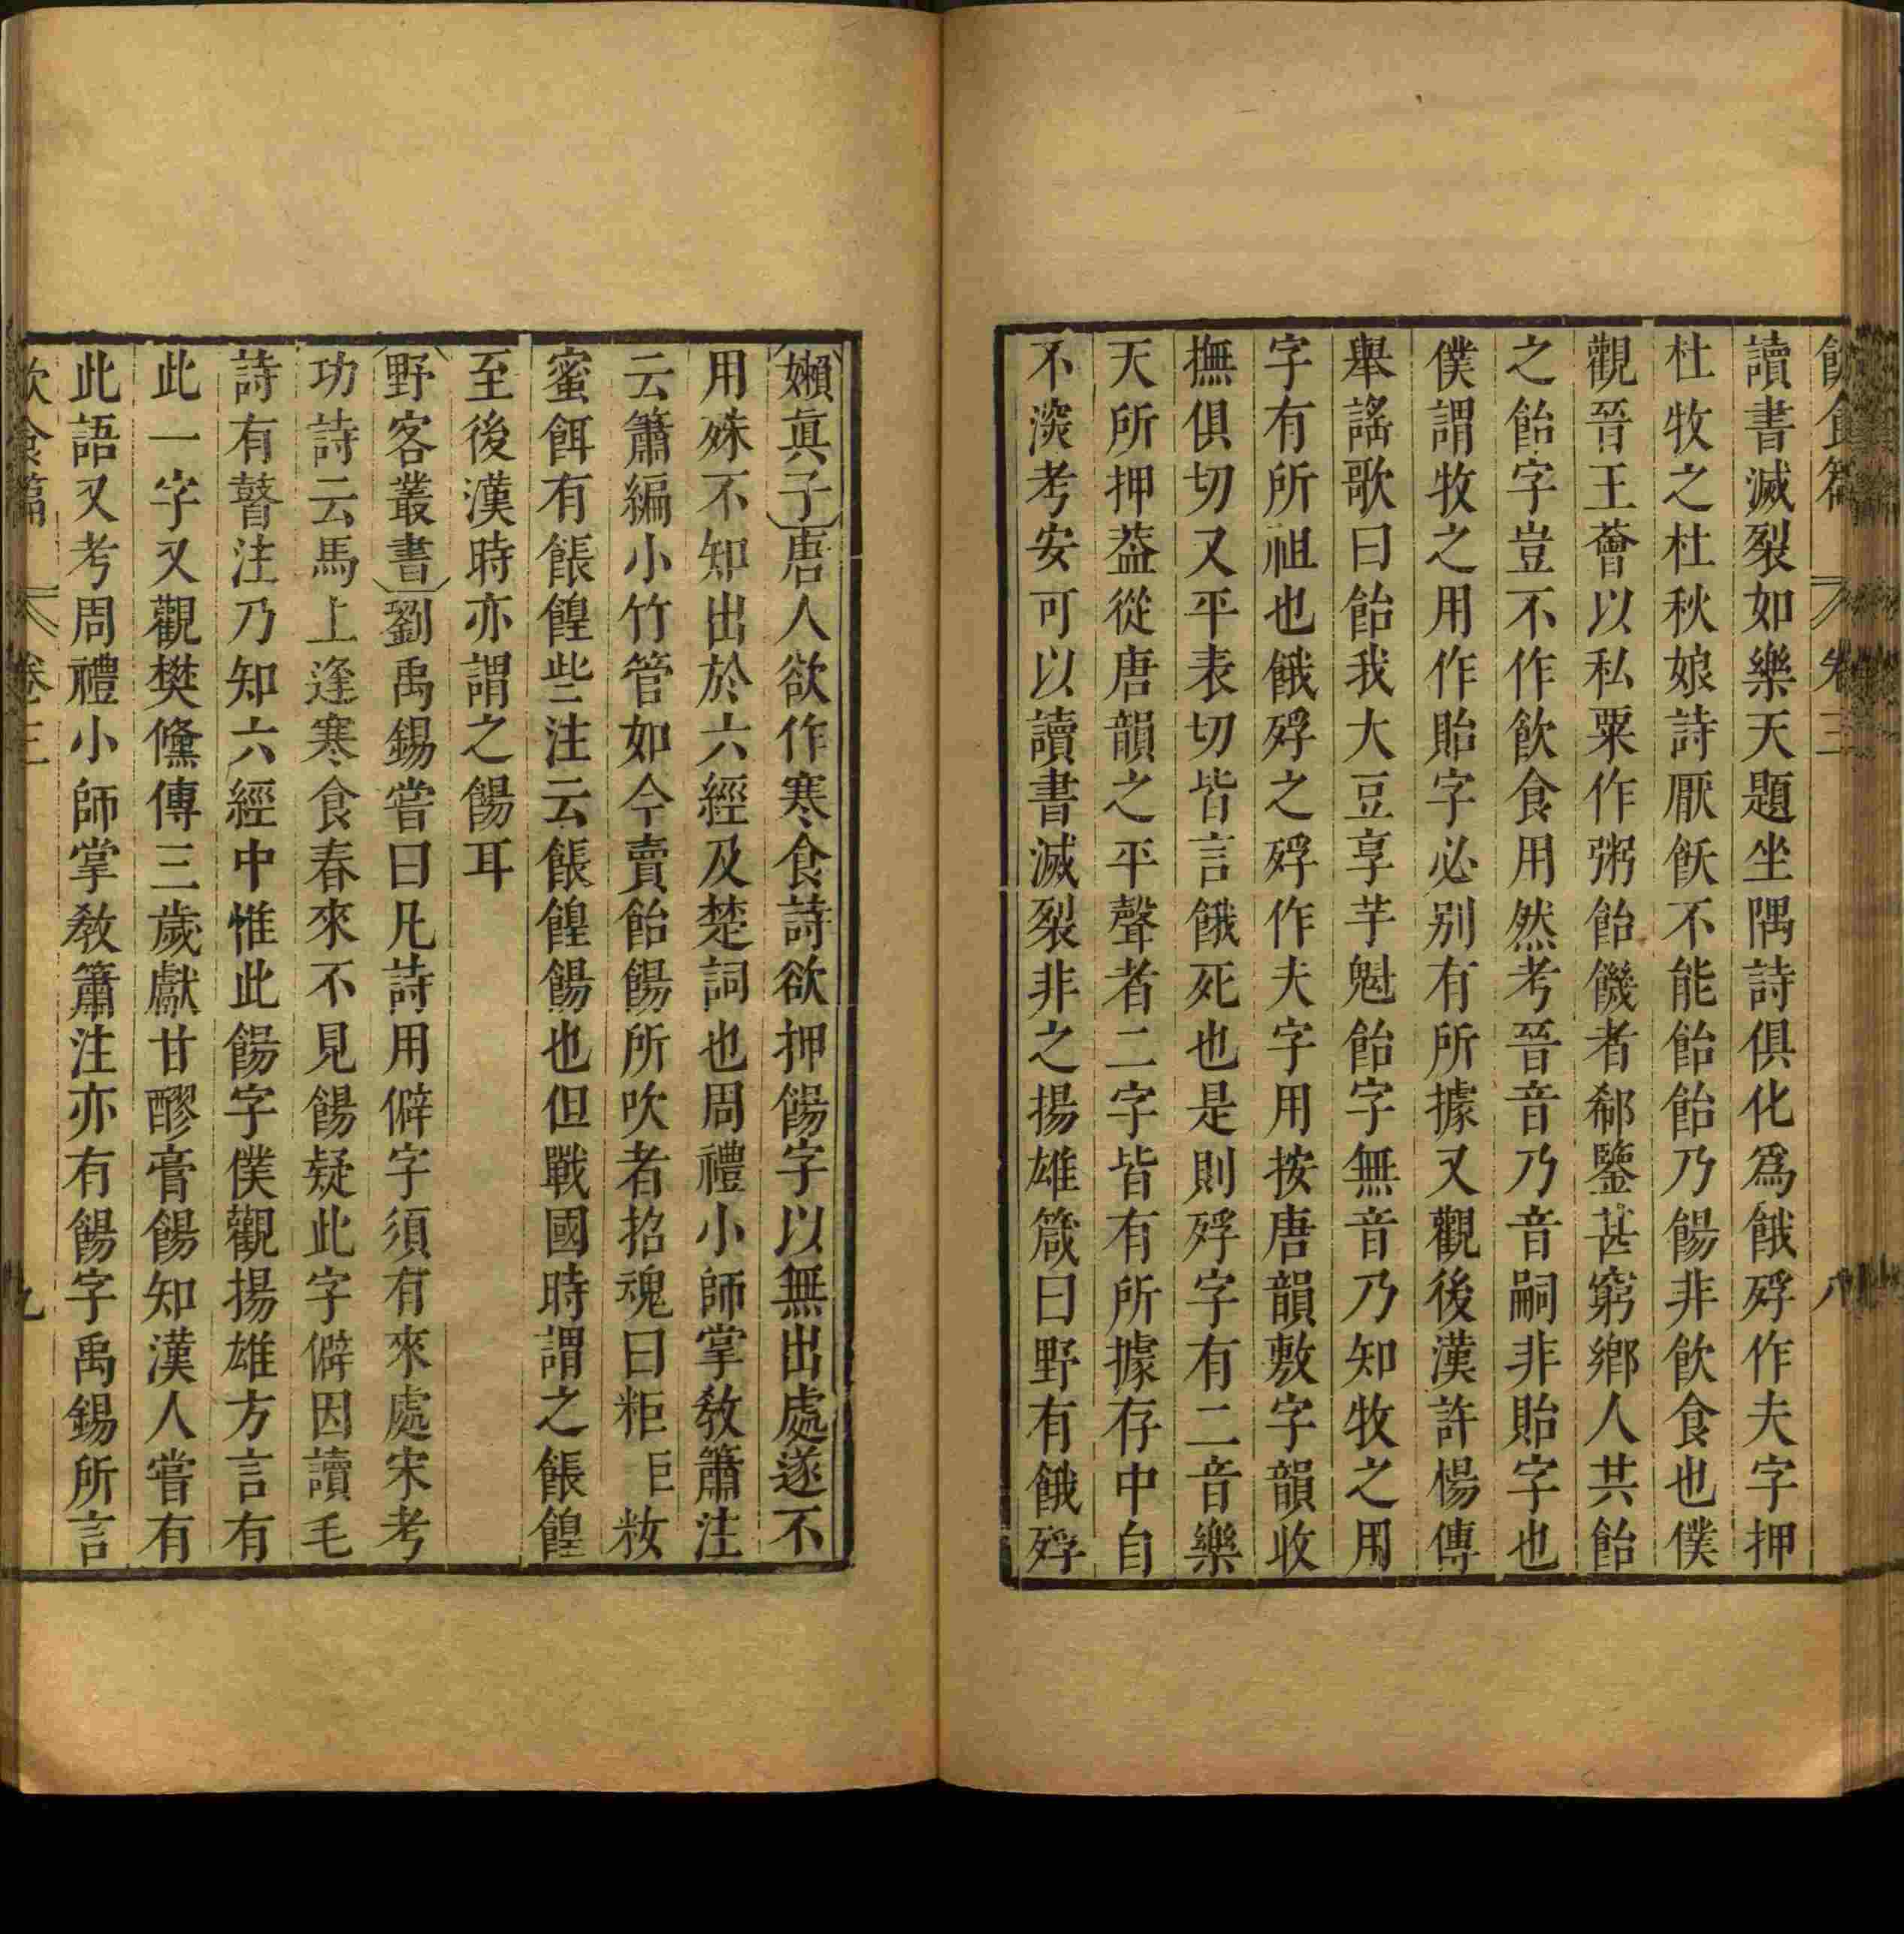 飲食篇 卷三 八
讀書滅裂如樂天題坐隅詩俱化爲餓殍作夫字押
杜牧之杜秋娘詩厭飫不能飴飴乃餳非飲食也僕
觀晉王薈以私粟作粥飴饑者郗鑒甚窮鄉人共飴
之飴字豈不作飲食用然考晉音乃音嗣非貽字也
僕謂牧之用作貽字必别有所據又觀後漢許楊傳
舉謠歌曰飴我大豆享芋魁飴字無音乃知牧之用
字有所祖也餓殍之殍作夫字用按唐韻敷字韻收
撫俱切又平表切皆言餓死也是則殍字有二音樂
天所押葢從唐韻之平聲者二字皆有所據存中自
不深考安可以讀書滅裂非之揚雄箴曰野有餓殍
嬾眞子唐人欲作寒食詩欲押餳字以無出處遂不
用殊不知出於六經及楚詞也周禮小師掌教簫注
云簫編小竹管如今賣飴餳所吹者招魂曰粔巨籹
蜜餌有餦餭些注云餦餭餳也但戰國時謂之餦餭
至後漢時亦謂之餳耳
野客叢書劉禹錫嘗曰凡詩用僻字須有來處宋考
功詩云馬上逢寒食春來不見餳疑此字僻因讀毛
詩有瞽注乃知六經中惟此餳字僕觀揚雄方言有
此一字又觀樊儵傳三歲獻甘醪膏餳知漢人嘗有
此語又考周禮小師掌教簫注亦有餳字禹錫所言
飲食篇 卷三 九